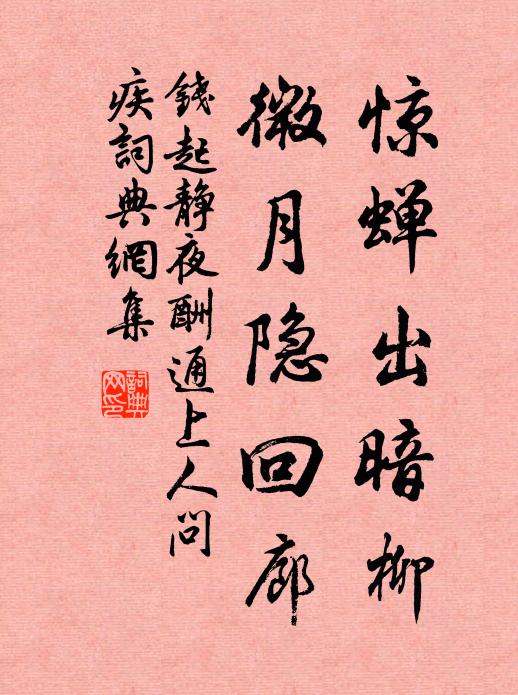 惊蝉出暗柳
微月隐回廊
錢起静夜酬通上人問
疾詞典網集
詞典網印